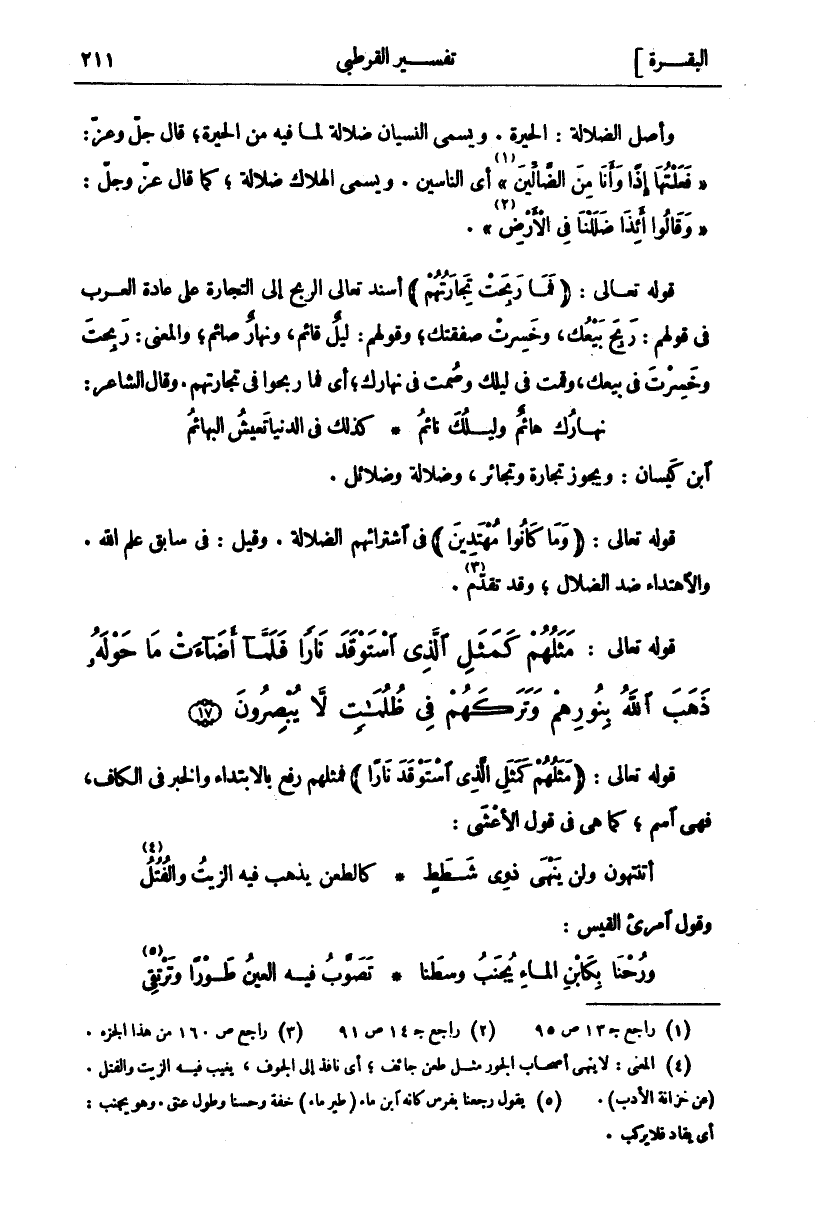 البقـــرة ] تفســـير القرطبى ٢١١
وأصل الضلالة : الحيرة . ويسمى النسيان ضلالة لمـا فيه من الحيرة؛ قال جلّ وعزّ:
« فَعَلْتُهَا إِذًا وَأَنَا مِنَ الضَّالِّينَ(١) » أى الناسين . ويسمى الهلاك ضلالة ؛ كما قال عزّ وجلّ :
« وَقَالُوا أَئِذَا ضَلَلْنَا فِى الْأَرْضِ(٢) » .
قوله تعـالى : ﴿ فَمَـا رَبِحَتْ تِجَارَتُهُمْ ﴾ أسند تعالى الربح إلى التجارة على عادة العـرب
فى قولهم : رَبِحَ بَيْعُك، وخَسِرتْ صفقتك؛ وقولهم: ليلٌ قائم، ونهارٌ صائم؛ والمعنى: رَبِحتَ
وخَسِرْتَ فى بيعك، وقمت فى ليلك وصُمت فى نهارك؛ أى فما ربحوا فى تجارتهم. وقال الشاعر:
نهـارُك هائمٌ وليـلُكَ نائمُ * كذلك فى الدنيا تَعيشُ البهائمُ
ٱبن كَيسان : ويجوز تجارة وتجائر، وضلالة وضلائل .
قوله تعالى : ﴿ وَمَا كَانُوا مُهْتَدِينَ ﴾ فى ٱشترائهم الضلالة . وقيل : فى سابق علم الله .
والٱهتداء ضد الضلال ؛ وقد تقدّم(٣) .
قوله تعالى : مَثَلُهُمْ كَمَثَلِ ٱلَّذِى ٱسْتَوْقَدَ نَارًا فَلَمَّآ أَضَآءَتْ مَا حَوْلَهُۥ
ذَهَبَ ٱللَّهُ بِنُورِهِمْ وَتَرَكَهُمْ فِى ظُلُمَـٰتٍ لَّا يُبْصِرُونَ ﴿١٧﴾
قوله تعالى : ﴿ مَثَلُهُمْ كَمَثَلِ الَّذِى ٱسْتَوْقَدَ نَارًا ﴾ فمثلهم رفع بالابتداء والخبر فى الكاف،
فهى ٱسم ؛ كما هى فى قول الأعْشَى :
أتنتهون ولن يَنْهَى ذوِى شَـطَطٍ * كالطعن يذهب فيه الزيتُ والفُتُلُ(٤)
وقول ٱمرئ القيس :
ورُحْنَا بِكَابْنِ المـاءِ يُجنَبُ وسطَنا * تَصَوَّبُ فيـه العينُ طَـوْرًا وتَرْتَقِى(٥)
(١) راجع جـ ١٣ ص ٩٥ (٢) راجع جـ ١٤ ص ٩١ (٣) راجع ص ١٦٠ من هذا الجزء .
(٤) المعنى : لا ينهى أصحاب الجور مثـل طعن جائف ؛ أى نافذ إلى الجوف ، يغيب فيـه الزيت والفتل .
(عن خزانة الأدب) . (٥) يقول رجعنا بفرس كأنه ٱبن ماء (طير ماء) خفة وحسنا وطول عنق. وهو يجنب :
أى يقاد فلا يركب .